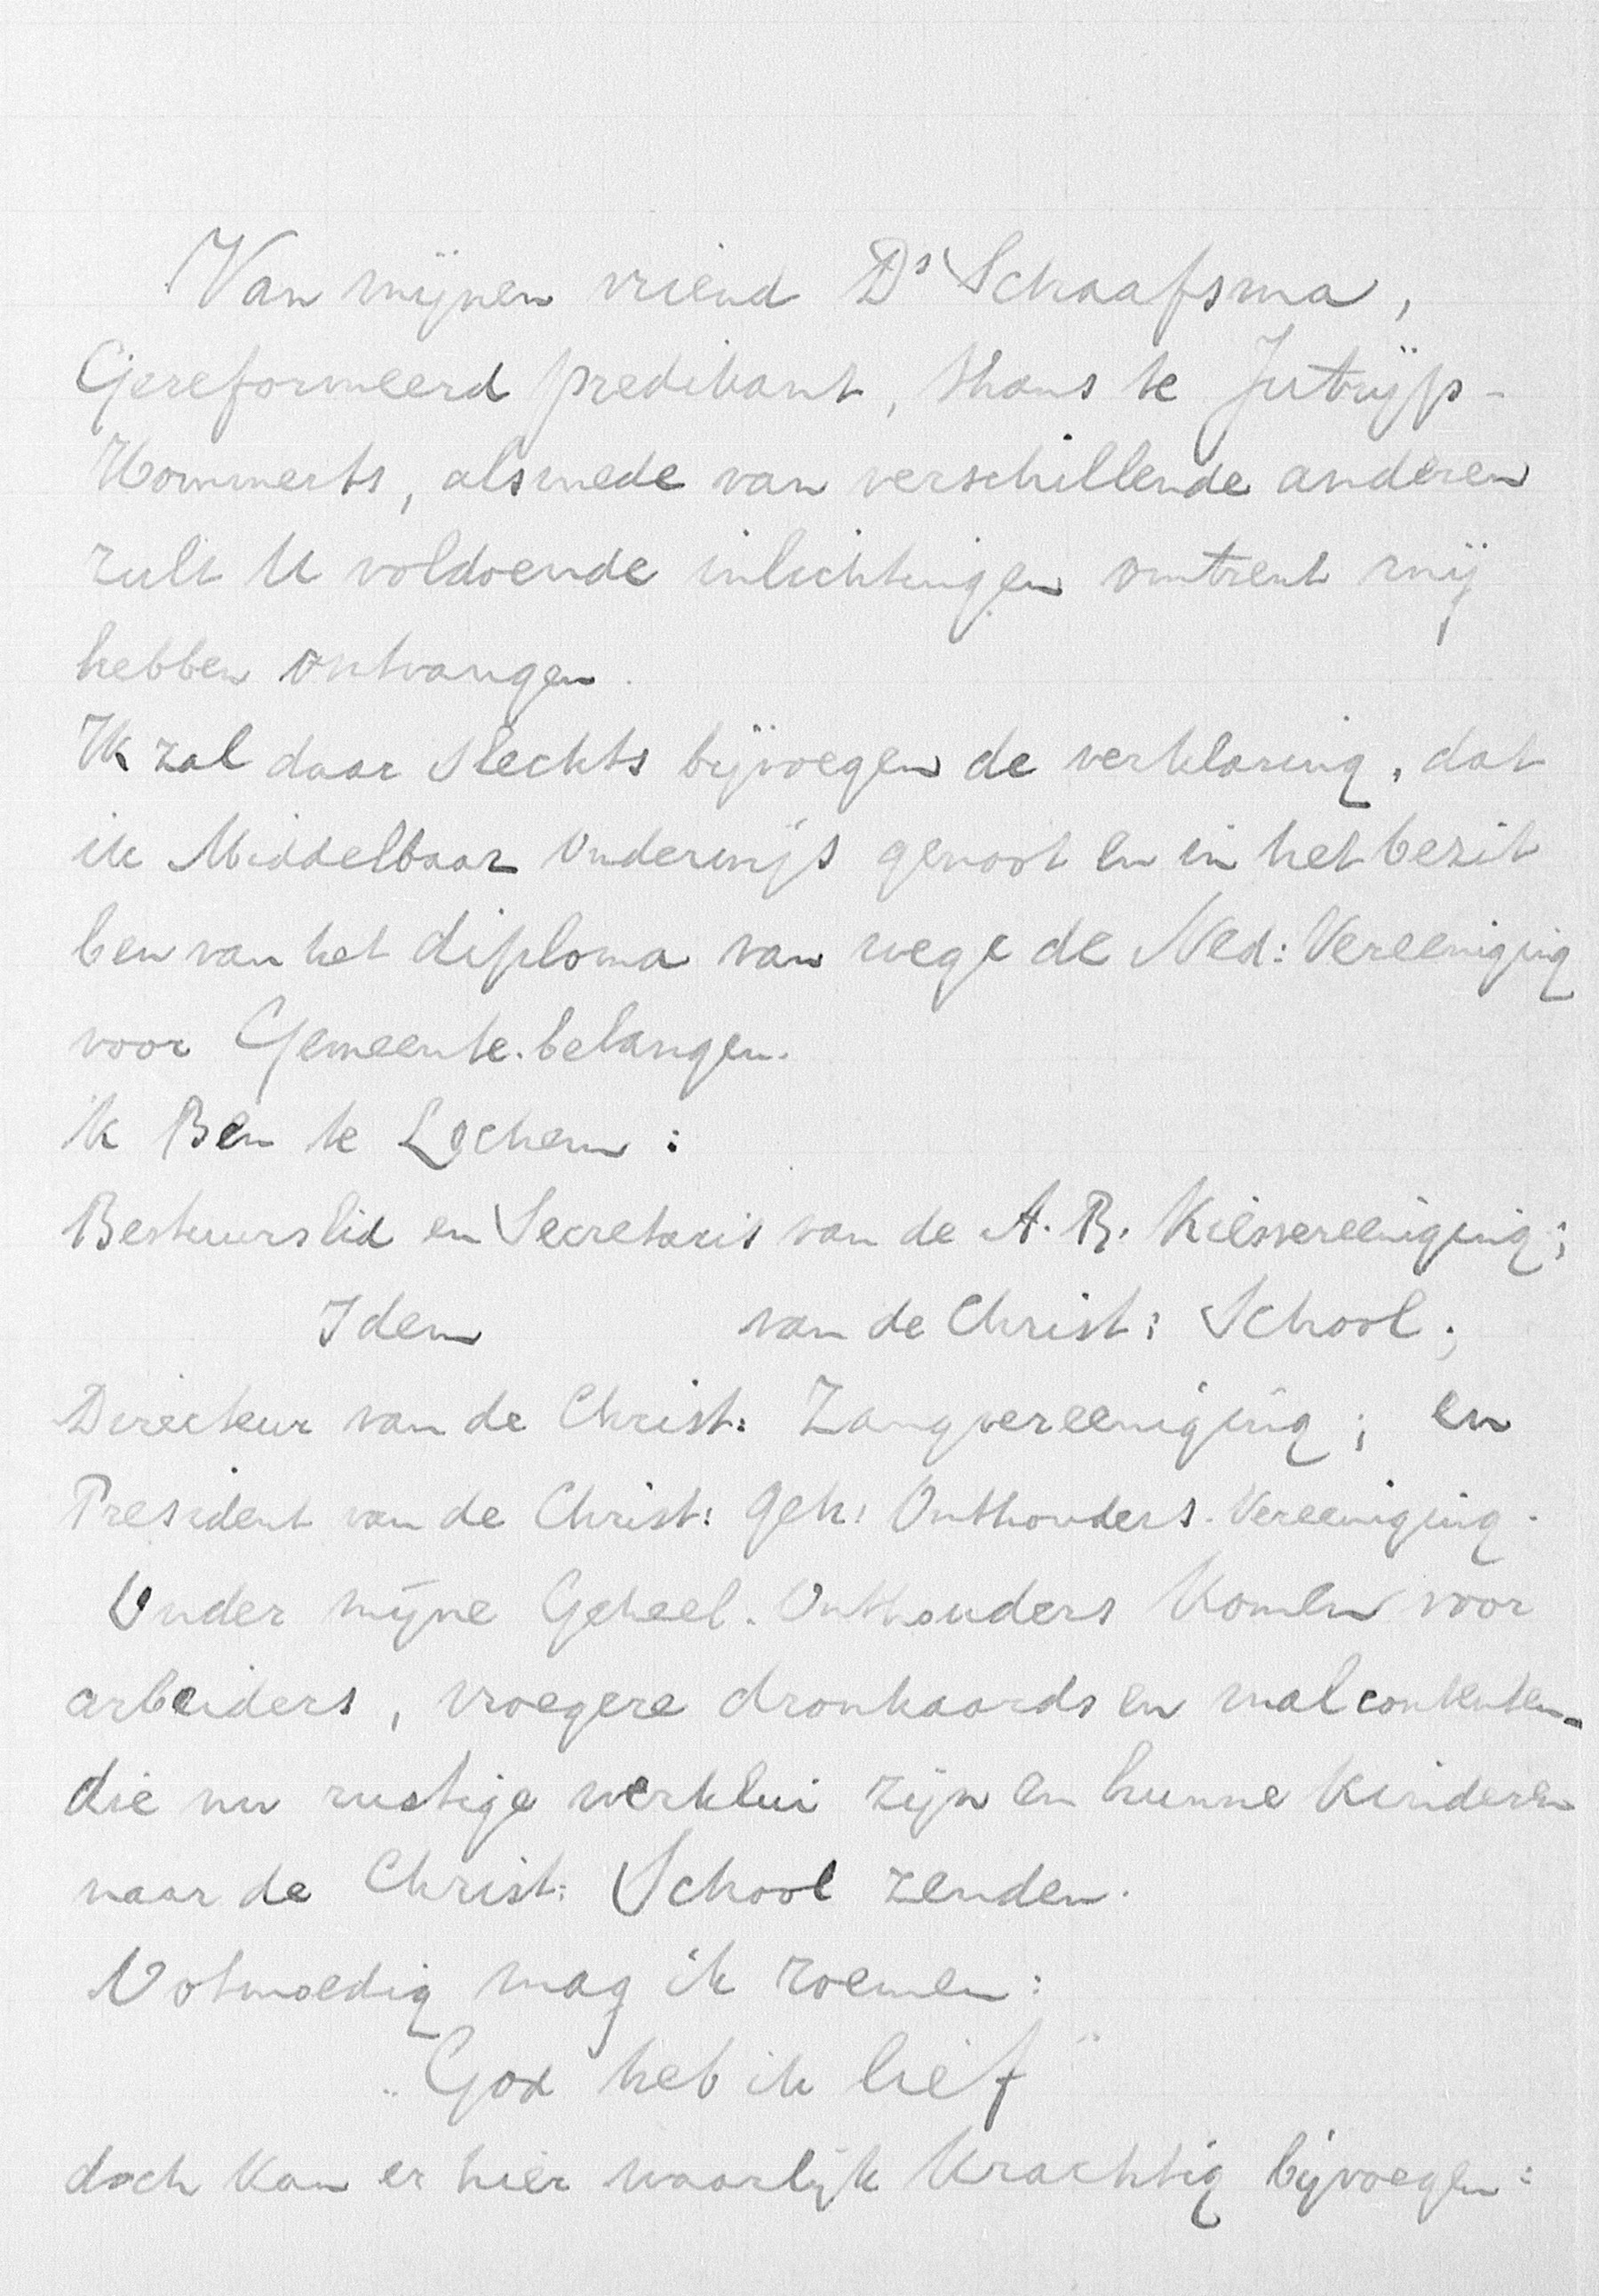 Van mijnen vriend Ds Schaafsma,
Gereformeerd predikant, thans te Jutrijp-
Hommerts, alsmede van verschillende anderen
zult U voldoende inlichtingen omtrent mij
hebben ontvangen.
Ik zal daar slechts bijvoegen de verklaring, dat
ik Middelbaar Onderwijs genoot en in het bezit
ben van het diploma van wege de Ned: Vereeniging
voor Gemeente-belangen.
ik Ben te Lochem:
Bestuurslid en Secretaris van de A. R. Kiesvereeniging;
Idem van de Christ: School;
Directeur van de Christ: Zangvereeniging; en
President van de Christ: Geh: Onthouders-Vereeniging.
Onder mijne Geheel-Onthouders komen voor
arbeiders, vroegere dronkaards en malcontenten-
die nu rustige werklui zijn en hunne kinderen
naar de Christ: School zenden.
Ootmoedig mag ik roemen:
"God heb ik lief"
doch kan er hier waarlijk krachtig bijvoegen: